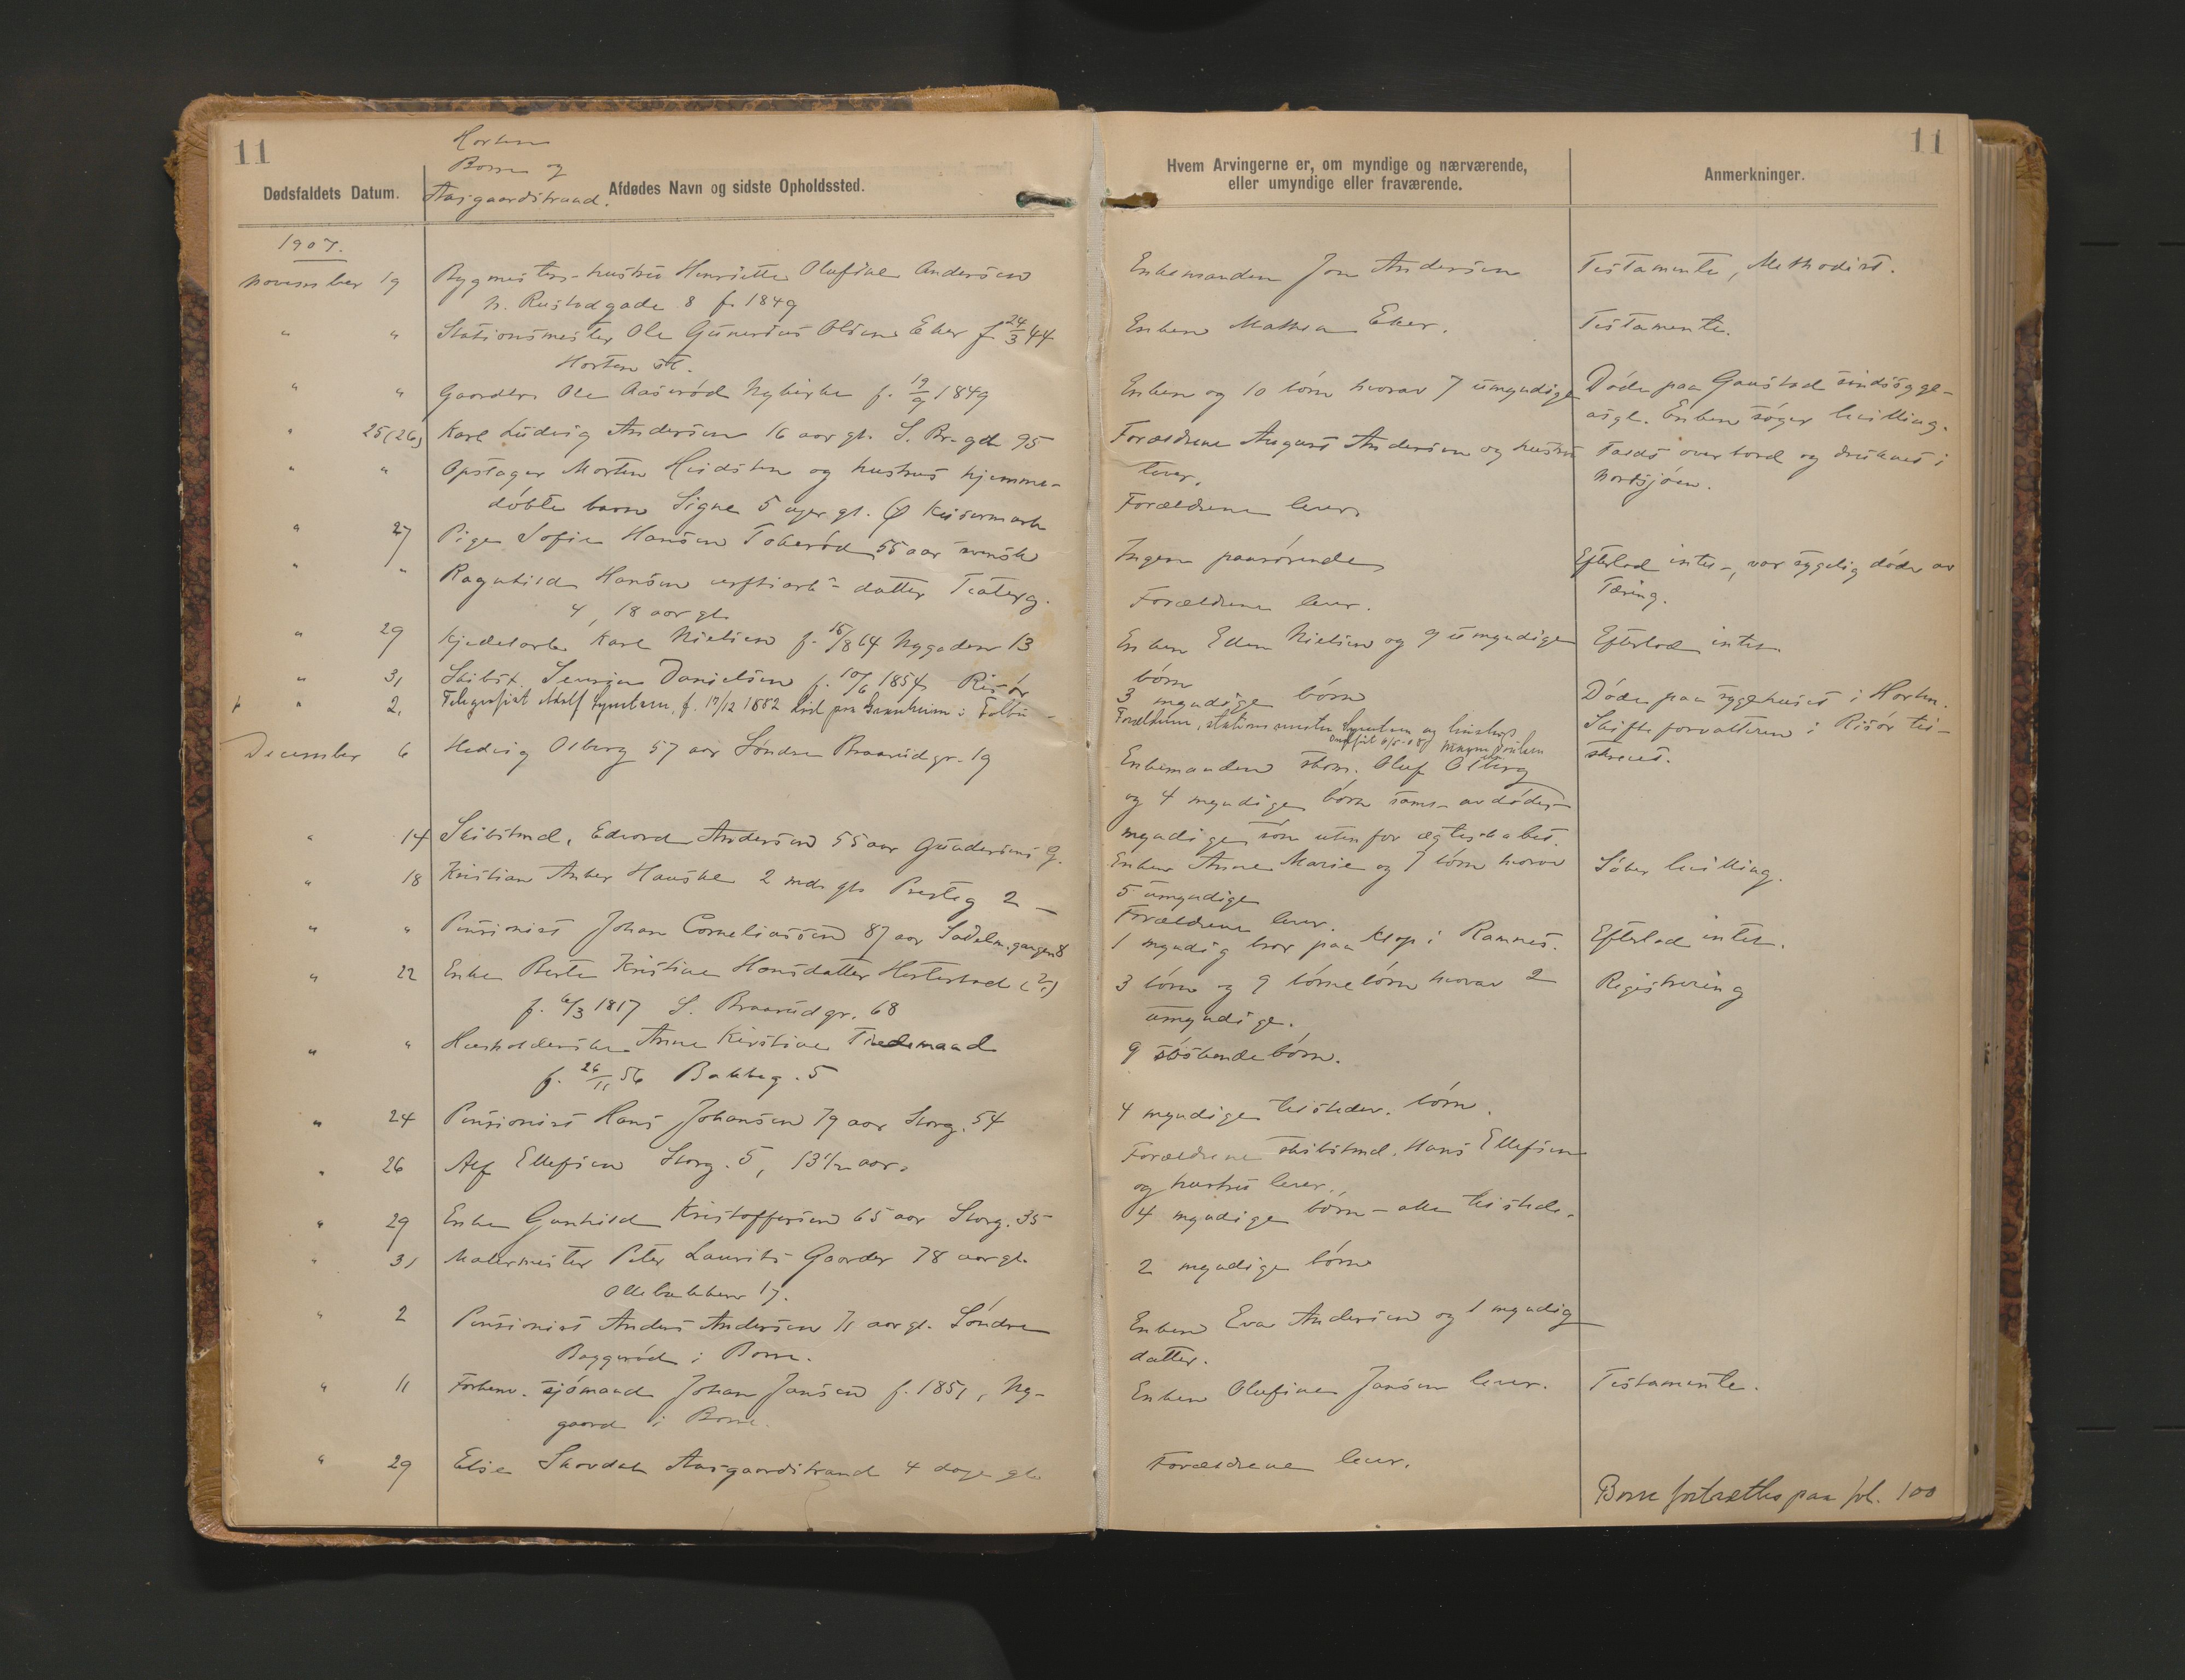 11
Horten
Borre og
Aasgaardstrand.
Dødsfaldets Datum.
Afdødes Navn og sidste Opholdssted.
1907.
november 19 Bygmesters hustru Henriette Olufine Andersen
n. Rustadgade 8 f. 1849
" " Stationsmester Ole Gunerius Olsen Eker f 24/3 44
Horten st.
" " Gaardbr. Ole Aasrød Nykirke f. 19/9 1849
" 25(26) Karl Ludvig Andersen 16 aar gl. S. Br.gd. 95
" " Opstager Morten Hidsten og hustrus hjemme-
døbte barn Signe 5 uger gl. Keisermark
" 27 Pige Sofie Hansen Tokerød 55 aar svensk
" " Ragnhild Hansen verftsarb- datter Teaterg.
4, 18 aar gl.
" 29 Kjedelarb. Karl Nielsen f. 15/8 64 Nygaden 13
" 31 Skibsk. Severin Danielsen f. 10/6 1854 Risør
" 2. Telegrafist Adolf f. 17/12 1882
December 6 Hedvig Osberg 57 aar Søndre Braarudgr. 19
" 14 Skibstmd. Edvard Andersen 55 aar Gundersens G.
" 18 Kristian Anker Hauske 2 mdr gl. Presteg 2
" " Pensionist Johan Corneliussen 87 aar Sadelm.gangen 8
" 22 Enke Berte Kristine Hansdatter Hesterstad (?)
f. 6/3 1817 S. Braarudgr. 68
" " Husholderske Anne Kirstine Tiedemand
f. 26/11 56 Bakkeg. 5
" 24 Pensionist Hans Johansen 79 aar Storg. 54
" 26 Alf Ellefsen Storg. 5, 13 1/2 aar.
" 29 Enke Gunhild Kristoffersen 65 aar Storg. 35
" 31 Malermester Peter Laurits Gaarder 78 aar gl.
Ollebakken 17.
" 2 Pensionist Anders Andersen 71 aar gl. Søndre
Baggerød i Borre.
" 11 Forhenv. sjømand Johan Jansen f. 1851, Ny-
gaard i Borre.
" 29 Else Skovdal Aasgaardstrand 4 dage gl.
11
Hvem Arvingerne er, om myndige og nærværende,
eller umyndige eller fraværende.
Anmerkninger.
Enkemanden Jon Andersen
Testamente, Methodist.
Enken Mathea Eker.
Testamente.
Enken og 10 børn hvorav 7 umyndige
Døde paa Gaustad sindssyge-
asyl. Enken søger bevilling.
Forældrene August Andersen og hustru
lever.
Faldt overbord og druknet i
Nordsjøen.
Forældrene lever
Ingen paarørende
Efterlod intet, var sygelig døde av
Tæring.
Forældrene lever.
Enken Ellen Nielsen og 9 umyndige
børn
Efterlod intet
3 myndige børn
Døde paa sygehuset i Horten.
Skifteforvalteren i Risør til-
skrevet.
Forældrene, stationsmester og hustru
Enkemanden skom. Oluf Osberg
og 4 myndige børn samt avdødes
myndige søn uten for ægteskabet.
Enken Anne Marie og 7 børn hvorav
5 umyndige
Søker bevilling.
Forældrene lever.
1 myndig bror paa Klop i Ramnes.
Efterlod intet.
3 børn og 9 børnebørn hvorav 2
umyndige.
Registrering
9 søskendebørn.
4 myndige tilstedev. børn.
Forældrene skibstmd. Hans Ellefsen
og hustru lever.
4 myndige børn - alle tilstede.
2 myndige børn
Enken Eva Andersen og 1 myndig
datter.
Enken Olufine Jansen lever.
Testamente.
Forældrene lever.
Borre fortsættes paa fol. 100